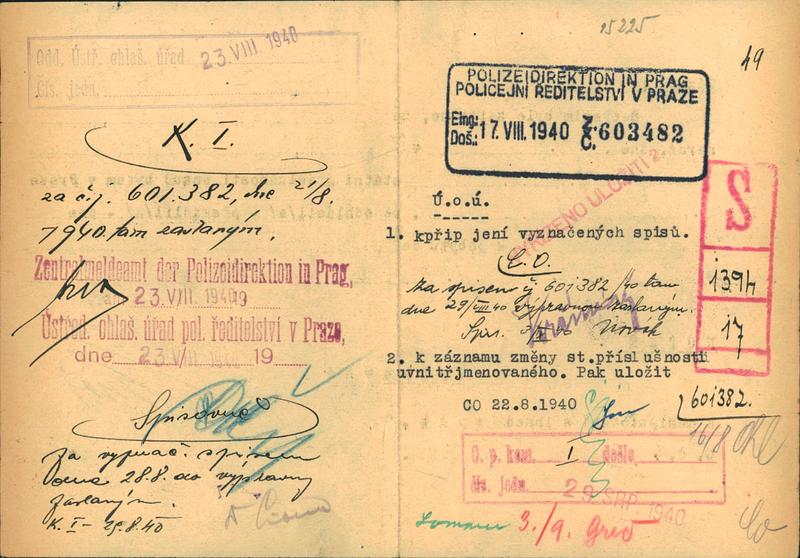 Odd. Ústř. ohlaš. úřad
23.VIII 1940
Čís. jedn.
K. I.
za č.j. 601.382, dne 21/8.
1940 tam zaslaným.
Zentralmeldeamt der Polizeidirektion in Prag,
am 23.VIII.1940 19
Ústřed. ohlaš. úřad pol. ředitelství v Praze,
dne 23.VIII. 19
Spisovně
za
28.8. do výpravny
zaslaným.
K. I - 29.8.40
15225
49
POLIZEIDIREKTION IN PRAG
POLICEJNÍ ŘEDITELSTVÍ V PRAZE
Eing:
Doš.: 17.VIII.1940 Z. Č. 603482
ULOŽITI
Ú.o.ú.
1. kpřip jení vyznačených spisů.
za spisem č 601382/40 tam
dne 29/VIII 40 výpravnou zaslaným.
Novák
S
139h
17
2. k záznamu změny st.příslušnosti
uvnitřjmenovaného. Pak uložit
CO 22.8.1940
601382.
16/8
O. p. kom. I došlo
čís. jedn.
29 SRP 1940
3./9.